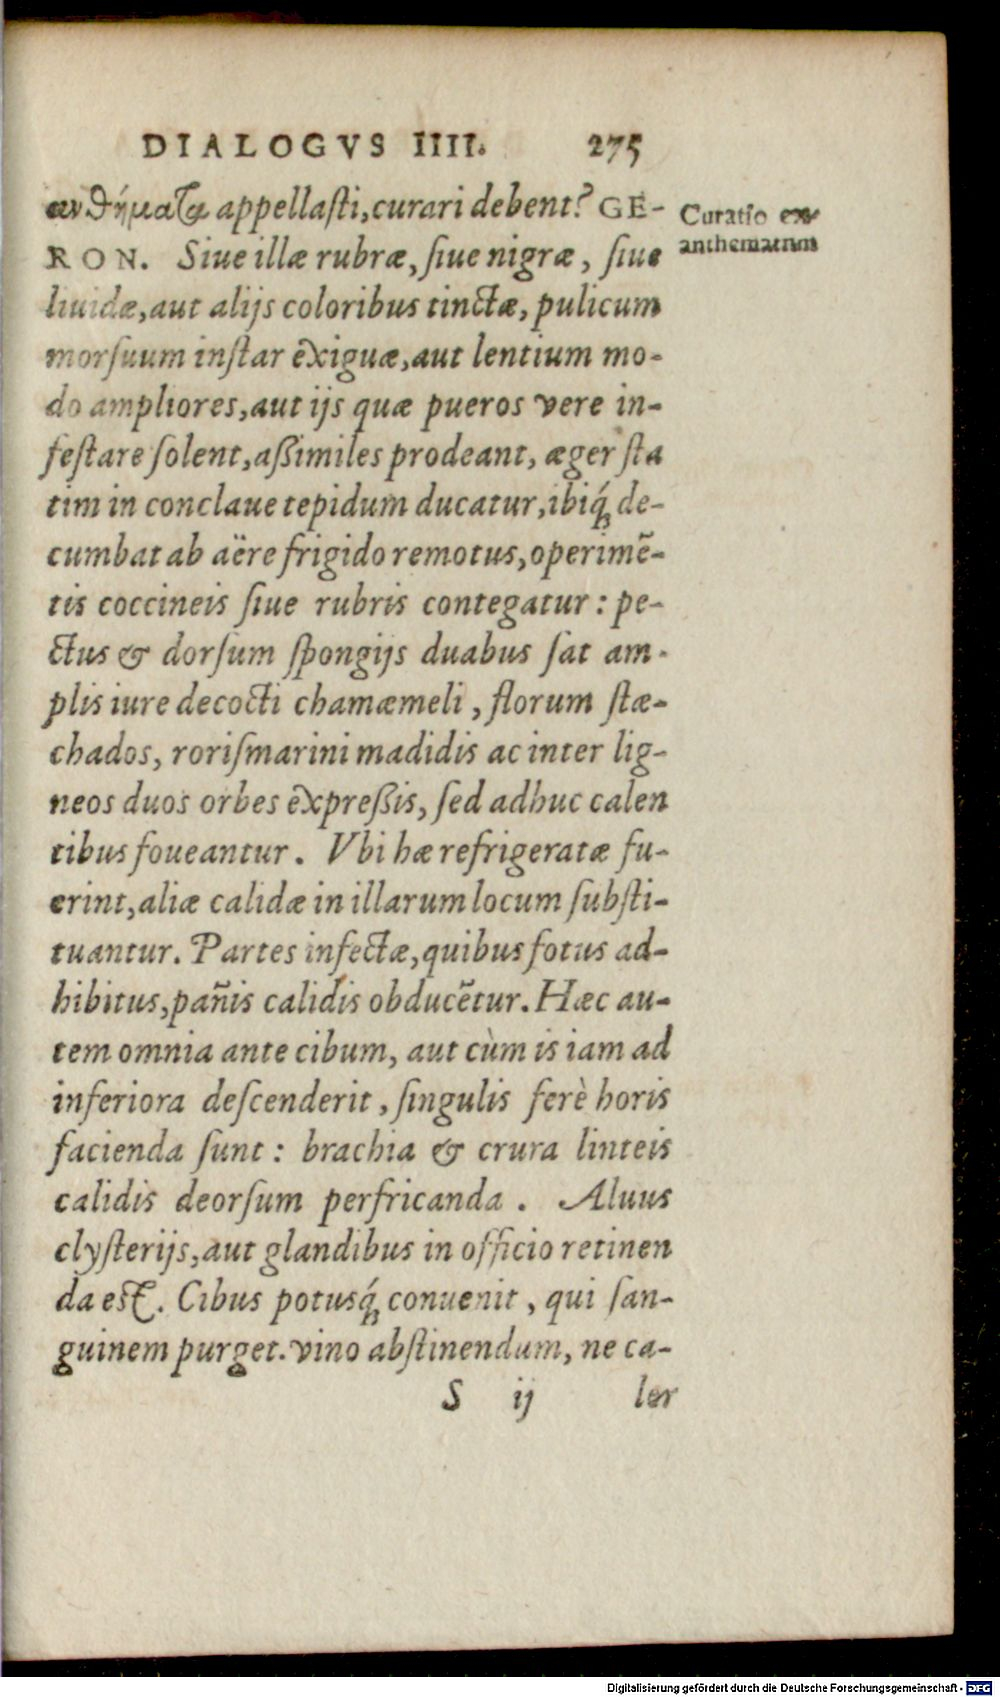 DIALOGVS IIII. 275
ανθήματα appellaſti, curari debent? GE-
Curatio ex-
anthematum
RON. Siue illæ rubræ, ſiue nigræ, ſiue
liuidæ, aut alijs coloribus tinctæ, pulicum
morſuum inſtar exiguæ, aut lentium mo-
do ampliores, aut ijs quæ pueros vere in-
feſtare ſolent, aßimiles prodeant, æger ſta
tim in conclaue tepidum ducatur, ibiq́; de-
cumbat ab aëre frigido remotus, operimē-
tis coccineis ſiue rubris contegatur: pe-
ctus & dorſum ſpongijs duabus ſat am-
plis iure decocti chamæmeli, florum ſtæ-
chados, roriſmarini madidis ac inter lig-
neos duos orbes expreßis, ſed adhuc calen
tibus foueantur. Vbi hæ refrigeratæ fu-
erint, aliæ calidæ in illarum locum ſubſti-
tuantur. Partes infectæ, quibus fotus ad-
hibitus, pañis calidis obducētur. Hæc au-
tem omnia ante cibum, aut cùm is iam ad
inferiora deſcenderit, ſingulis ferè horis
facienda ſunt: brachia & crura linteis
calidis deorſum perfricanda. Aluus
clyſterijs, aut glandibus in officio retinen
da eſt. Cibus potusq́; conuenit, qui ſan-
guinem purget. vino abſtinendum, ne ca-
S ij lor
Digitalisierung gefördert durch die Deutsche Forschungsgemeinschaft - DFG